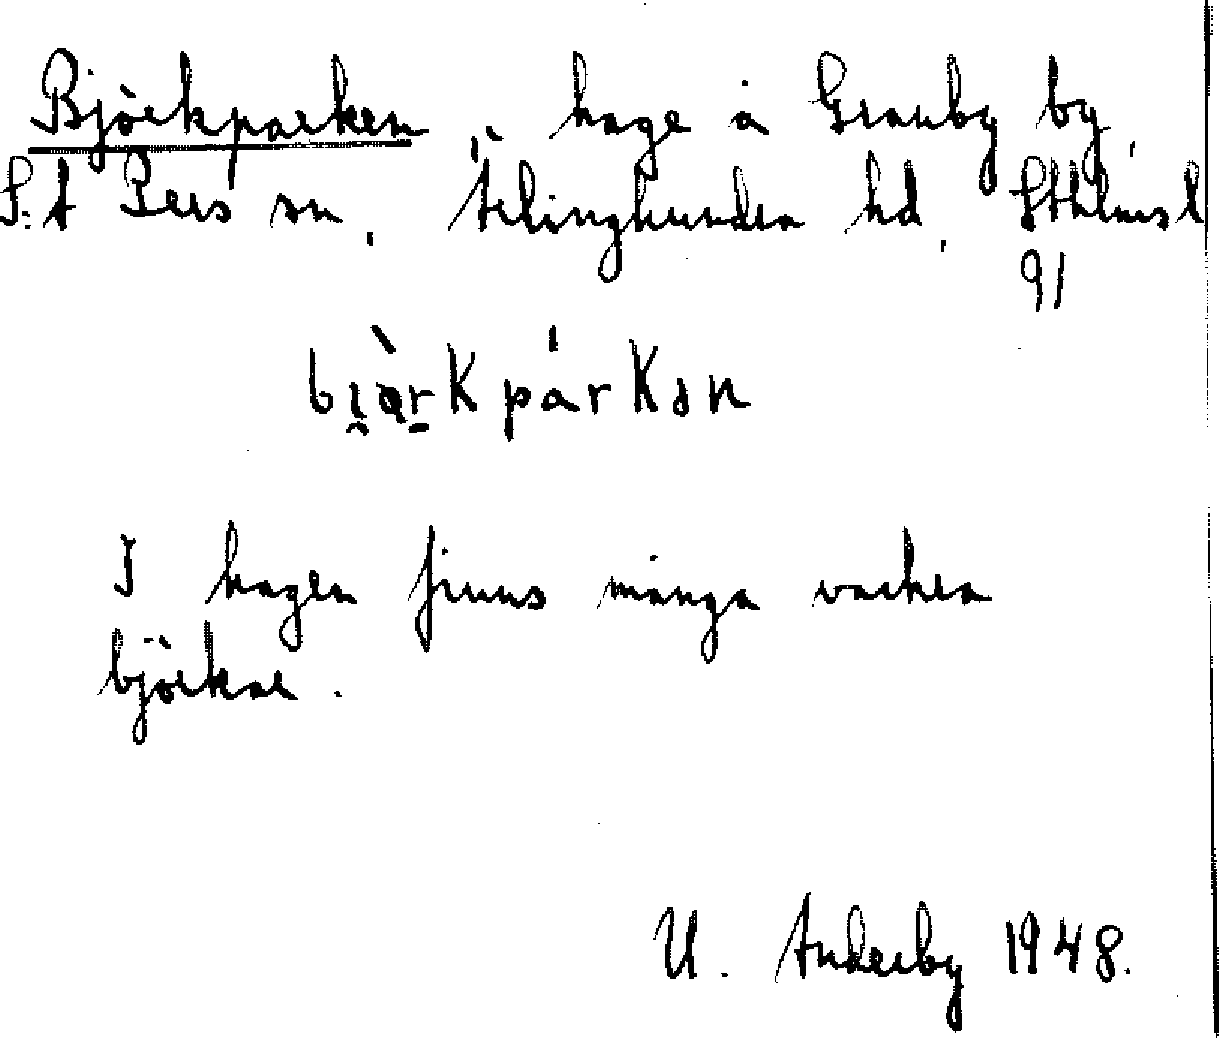 Björkparken, hage å Granby by,
S:t Pers sn, Ärlinghundra hd, Sthlms l
91
bi̯ö̀r̠kpárkən
I hagen finns många vackra
björkar.
U. Anderby 1948.